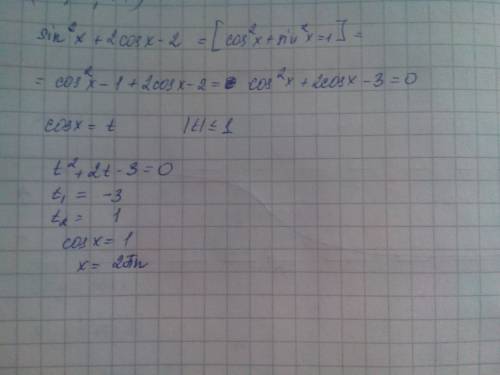 sin²x + 2cosx - 2 = [cos²x + sin²x = 1] =
= cos²x - 1 + 2cosx - 2 = cos²x + 2cosx - 3 = 0
cosx = t |t| ≤ 1
t² + 2t - 3 = 0
t₁ = -3
t₂ = 1
cosx = 1
x = 2πn